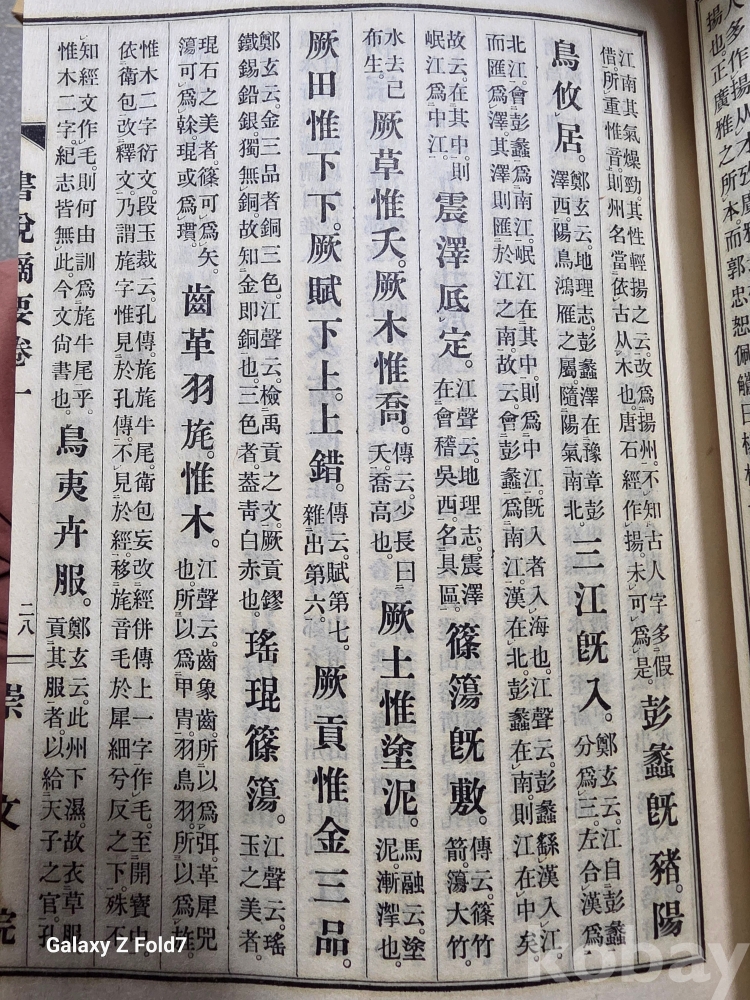 揚也正廣雅之所本而郭忠恕佩觿曰
江南其氣燥勁。其性輕揚之云。改爲揚州。不知古人字多假
借。所重惟音。則州名當依古从木也。唐石經作揚。未可爲是。
彭蠡旣豬。陽
鳥攸居。
鄭玄云。地理志。彭蠡澤在豫章彭
澤西。陽鳥鴻雁之屬。隨陽氣南北。
三江旣入。
鄭玄云。江自彭蠡
分爲三。左合漢爲
北江。會彭蠡爲南江。岷江在其中。則爲中江。旣入者入海也。江聲云。彭蠡緐漢入江。
而匯爲澤。其澤則匯於江之南。故云。會彭蠡爲南江。漢在北。彭蠡在南。則江在中矣。
故云。在其中。則
岷江爲中江。
震澤厎定。
江聲云。地理志。震澤
在會稽吳西。名具區。
篠簜旣敷。
傳云。篠竹
箭。簜大竹。
水去已
布生。
厥草惟夭。厥木惟喬。
傳云。少長曰
夭。喬高也。
厥土惟塗泥。
馬融云。塗
泥。漸洳也。
厥田惟下下。厥賦下上。上錯。
傳云。賦第七。
雜出第六。
厥貢惟金三品。
鄭玄云。金三品者銅三色。江聲云。檢禹貢之文。厥貢鏐
鐵錫鉛銀。獨無銅。故知金即銅也。三色者。葢青白赤也。
瑤琨篠簜。
江聲云。瑤
玉之美者。
琨石之美者。篠可爲矢。
簜可爲榦。琨或爲瑻。
齒革羽旄。惟木。
江聲云。齒象齒。所以爲弭。革犀兕
也。所以爲甲冑。羽鳥羽。所以爲旌。
惟木二字衍文。段玉裁云。孔傳。旄旄牛尾。衛包妄改經併傳上一字作毛。至開寶中
依衛包改釋文。乃謂旄字惟見於孔傳。不見於經。移旄音毛於犀細兮反之下。殊不
知經文作毛。則何由訓爲旄牛尾乎。
惟木二字紀志皆無此。今文尙書也。
鳥夷卉服。
鄭玄云。此州下濕。故衣草服
貢其服者。以給天子之官。孔
書說摘要卷一
二八
崇文院
Galaxy Z Fold7
kobay